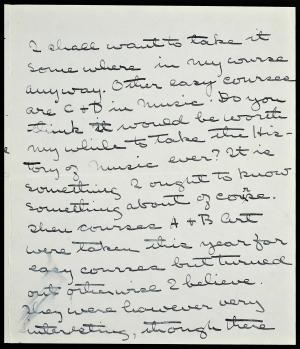 I shall want to take it
somewhere in my course
anyway. Other easy courses
are C & D in Music. Do you
think it would be worth
my while to take the His-
tory of Music ever? It is
something I ought to know
something about of corse.
Then courses A & B Art
were taken this year for
easy courses but turned
out otherwise I believe.
They were however very
interesting, though there